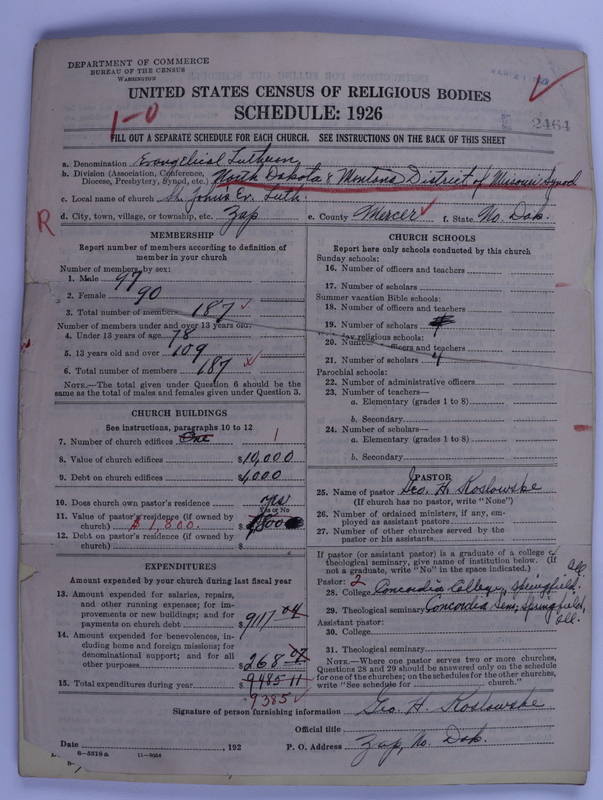 DEPARTMENT OF COMMERCE
BUREAU OF THE CENSUS
WASHINGTON
UNITED STATES CENSUS OF RELIGIOUS BODIES
SCHEDULE: 1926
1-0
2464
FILL OUT A SEPARATE SCHEDULE FOR EACH CHURCH. SEE INSTRUCTIONS ON THE BACK OF THIS SHEET
a. Denomination Evangelical Lutheran
b. Division (Association, Conference, Diocese, Presbytery, Synod, etc.) North Dakota & Montana District of Missouri Synod
c. Local name of church St. Johns Ev. Luth.
R
d. City, town, village, or township, etc. Zap e. County Mercer f. State No. Dak.
MEMBERSHIP
Report number of members according to definition of
member in your church
Number of members by sex:
1. Male 97
2. Female 90
3. Total number of members 187
Number of members under and over 13 years old:
4. Under 13 years of age 78
5. 13 years old and over 109
6. Total number of members 187
NOTE.—The total given under Question 6 should be the
same as the total of males and females given under Question 3.
CHURCH BUILDINGS
See instructions, paragraphs 10 to 12
7. Number of church edifices One 1
8. Value of church edifices $10,000
9. Debt on church edifices $4,000
10. Does church own pastor's residence yes
Yes or No
11. Value of pastor's residence (if owned by
church) $1,800. $
12. Debt on pastor's residence (if owned by
church) $
EXPENDITURES
Amount expended by your church during last fiscal year
13. Amount expended for salaries, repairs,
and other running expenses; for im-
provements or new buildings; and for
payments on church debt $9117 04
14. Amount expended for benevolences, in-
cluding home and foreign missions; for
denominational support; and for all
other purposes $268 07
15. Total expenditures during year $9485 11
9385
CHURCH SCHOOLS
Report here only schools conducted by this church
Sunday schools:
16. Number of officers and teachers
17. Number of scholars
Summer vacation Bible schools:
18. Number of officers and teachers
19. Number of scholars
day religious schools:
20. Number of officers and teachers
21. Number of scholars 4
Parochial schools:
22. Number of administrative officers
23. Number of teachers—
a. Elementary (grades 1 to 8)
b. Secondary
24. Number of scholars—
a. Elementary (grades 1 to 8)
b. Secondary
PASTOR
25. Name of pastor Geo. H. Koslowske
(If church has no pastor, write "None")
26. Number of ordained ministers, if any, em-
ployed as assistant pastors
27. Number of other churches served by the
pastor or his assistants
If pastor (or assistant pastor) is a graduate of a college or
theological seminary, give name of institution below. (If
not a graduate, write "No" in the space indicated.)
Pastor: 2
28. College Concordia College, Springfield, Ill.
29. Theological seminary Concordia Sem. Springfield, Ill.
Assistant pastor:
30. College
31. Theological seminary
NOTE.—Where one pastor serves two or more churches,
Questions 28 and 29 should be answered only on the schedule
for one of the churches; on the schedules for the other churches,
write "See schedule for church."
Signature of person furnishing information Geo. H. Koslowske
Official title
Date , 192 P. O. Address Zap, No. Dak.
8-5518a 11-9054